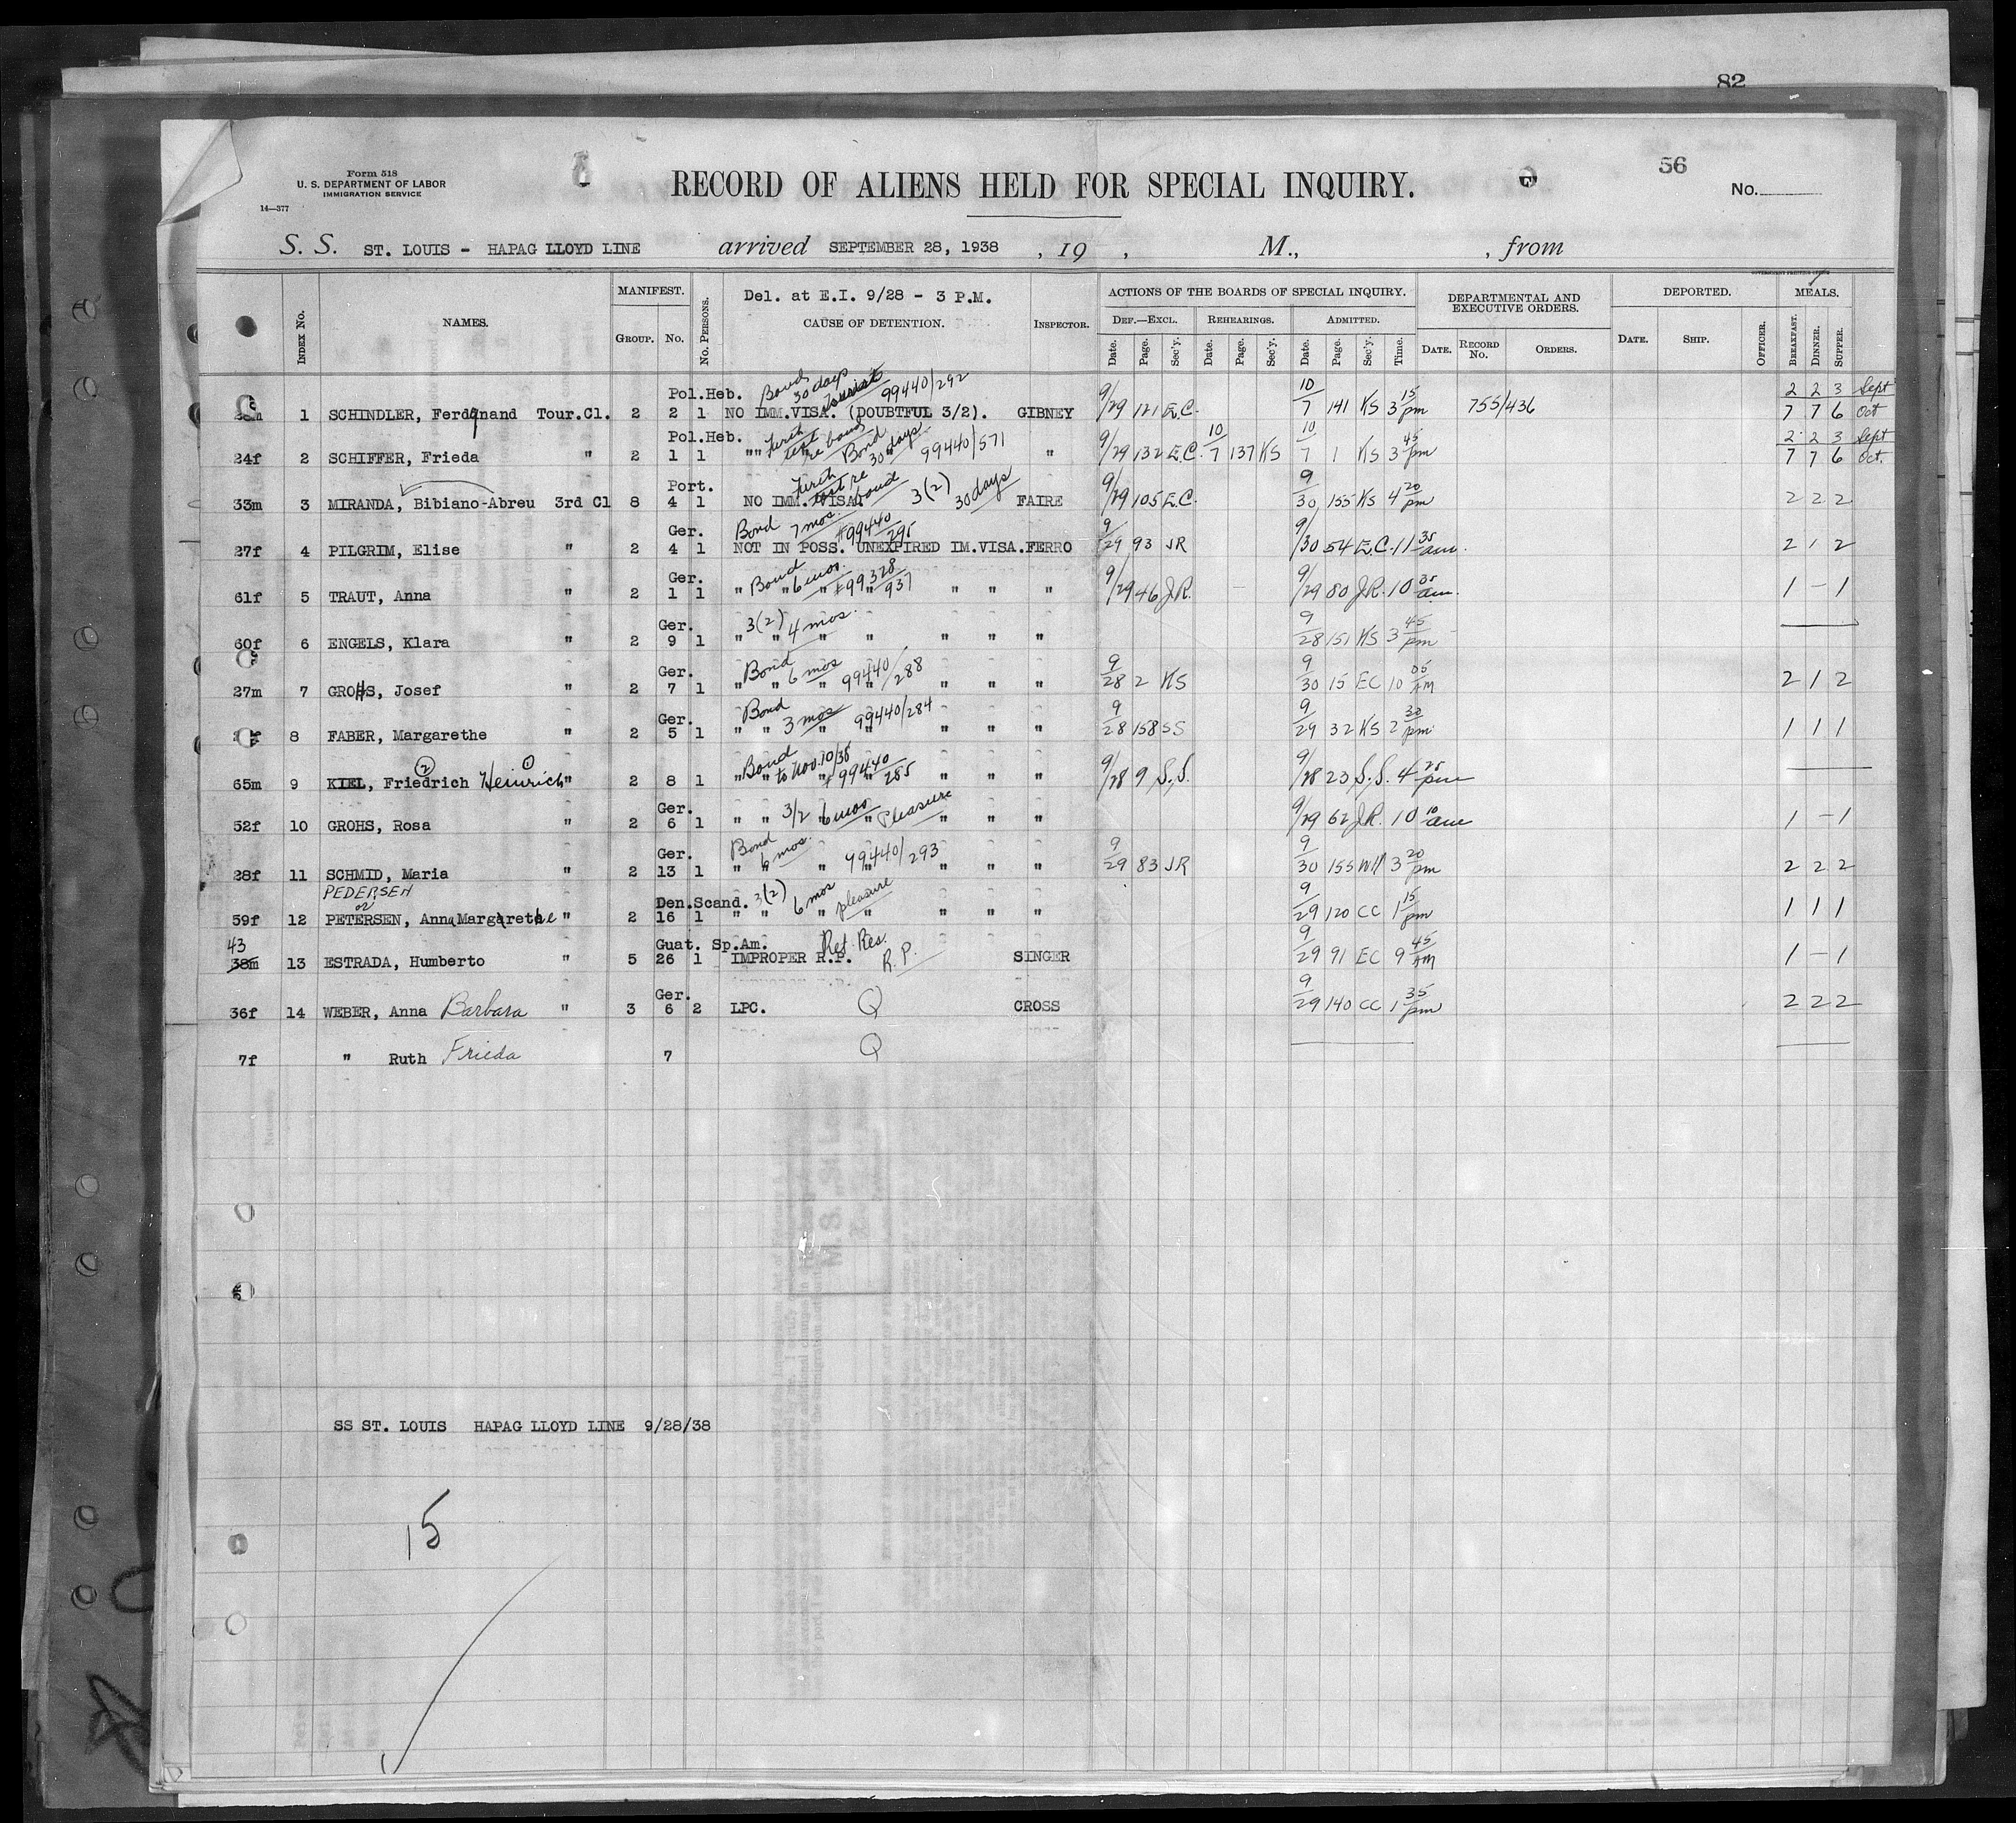 82
Form 518
U. S. DEPARTMENT OF LABOR
IMMIGRATION SERVICE
14—377
RECORD OF ALIENS HELD FOR SPECIAL INQUIRY.
56
No.
S. S. ST. LOUIS - HAPAG LLOYD LINE arrived SEPTEMBER 28, 1938 , 19 , M., , from
GOVERNMENT PRINTING OFFICE
INDEX No. NAMES. MANIFEST. GROUP. No. No. PERSONS. Del. at E.I. 9/28 - 3 P.M. CAUSE OF DETENTION. INSPECTOR.
ACTIONS OF THE BOARDS OF SPECIAL INQUIRY. DEF.—EXCL. Date. Page. Sec'y. REHEARINGS. Date. Page. Sec'y. ADMITTED. Date. Page. Sec'y. Time.
DEPARTMENTAL AND EXECUTIVE ORDERS. DATE. RECORD No. ORDERS. DEPORTED. DATE. SHIP. OFFICER. MEALS. BREAKFAST. DINNER. SUPPER.
Pol.Heb. Bond 30 days tourist 99440/292 2 2 3 Sept
1 SCHINDLER, Ferdinand Tour.Cl. 2 2 1 NO IMM.VISA. (DOUBTFUL 3/2). GIBNEY 9/29 121 E.C. 10/7 141 KS 3 15 pm 755/436 7 7 6 Oct
Pol.Heb. Bond 30 days 99440/571 2 2 3 Sept
24f 2 SCHIFFER, Frieda " 2 1 1 " " " 9/29 132 E.C. 10/7 137 KS 10/7 1 KS 3 45 pm 7 7 6 Oct.
Port. 3(2) 30 days
33m 3 MIRANDA, Bibiano-Abreu 3rd Cl 8 4 1 NO IMM. VISA. FAIRE 9/29 105 E.C. 9/30 155 KS 4 20 pm 2 2 2
Ger. Bond 7 mos. #99440/295
27f 4 PILGRIM, Elise " 2 4 1 NOT IN POSS. UNEXPIRED IM.VISA. FERRO 9/29 93 JR 9/30 54 E.C. 11 35 am. 2 1 2
Ger. Bond 6 mos. #99328/937
61f 5 TRAUT, Anna " 2 1 1 " " " " " " " 9/29 46 J.R. 9/29 80 J.R. 10 35 am. 1 - 1
Ger. 3(2) 4 mos.
60f 6 ENGELS, Klara " 2 9 1 " " " " " " " 9/28 151 KS 3 45 pm
Ger. Bond 6 mos 99440/288
27m 7 GROHS, Josef " 2 7 1 " " " " " " " 9/28 2 KS 9/30 15 EC 10 05 AM 2 1 2
Ger. Bond 3 mos 99440/284
8 FABER, Margarethe " 2 5 1 " " " " " " " 9/28 158 SS 9/29 32 KS 2 30 pm 1 1 1
Bond to Nov. 10/38 #99440/285
65m 9 KIEL, Friedrich Heinrich " 2 8 1 " " " " " " " 9/28 9 S.S. 9/28 23 S.S. 4 25 pm
Ger. 3/2 6 mos Pleasure
52f 10 GROHS, Rosa " 2 6 1 " " " " " " " 9/29 62 J.R. 10 10 am 1 - 1
Ger. Bond 6 mos. 99440/293
28f 11 SCHMID, Maria " 2 13 1 " " " " " " " 9/29 83 JR 9/30 155 3 20 pm 2 2 2
PEDERSEN or
Den.Scand. 3(2) 6 mos pleasure
59f 12 PETERSEN, Anna Margarethe " 2 16 1 " " " " " " " 9/29 120 CC 1 15 pm 1 1 1
43 Guat. Sp.Am. Ret. Res. R.P.
38m 13 ESTRADA, Humberto " 5 26 1 IMPROPER R.P. SINGER 9/29 91 EC 9 45 AM 1 - 1
Ger.
36f 14 WEBER, Anna Barbara " 3 6 2 LPC. Q CROSS 9/29 140 CC 1 35 pm 2 2 2
7f " Ruth Frieda 7 Q
SS ST. LOUIS HAPAG LLOYD LINE 9/28/38
15